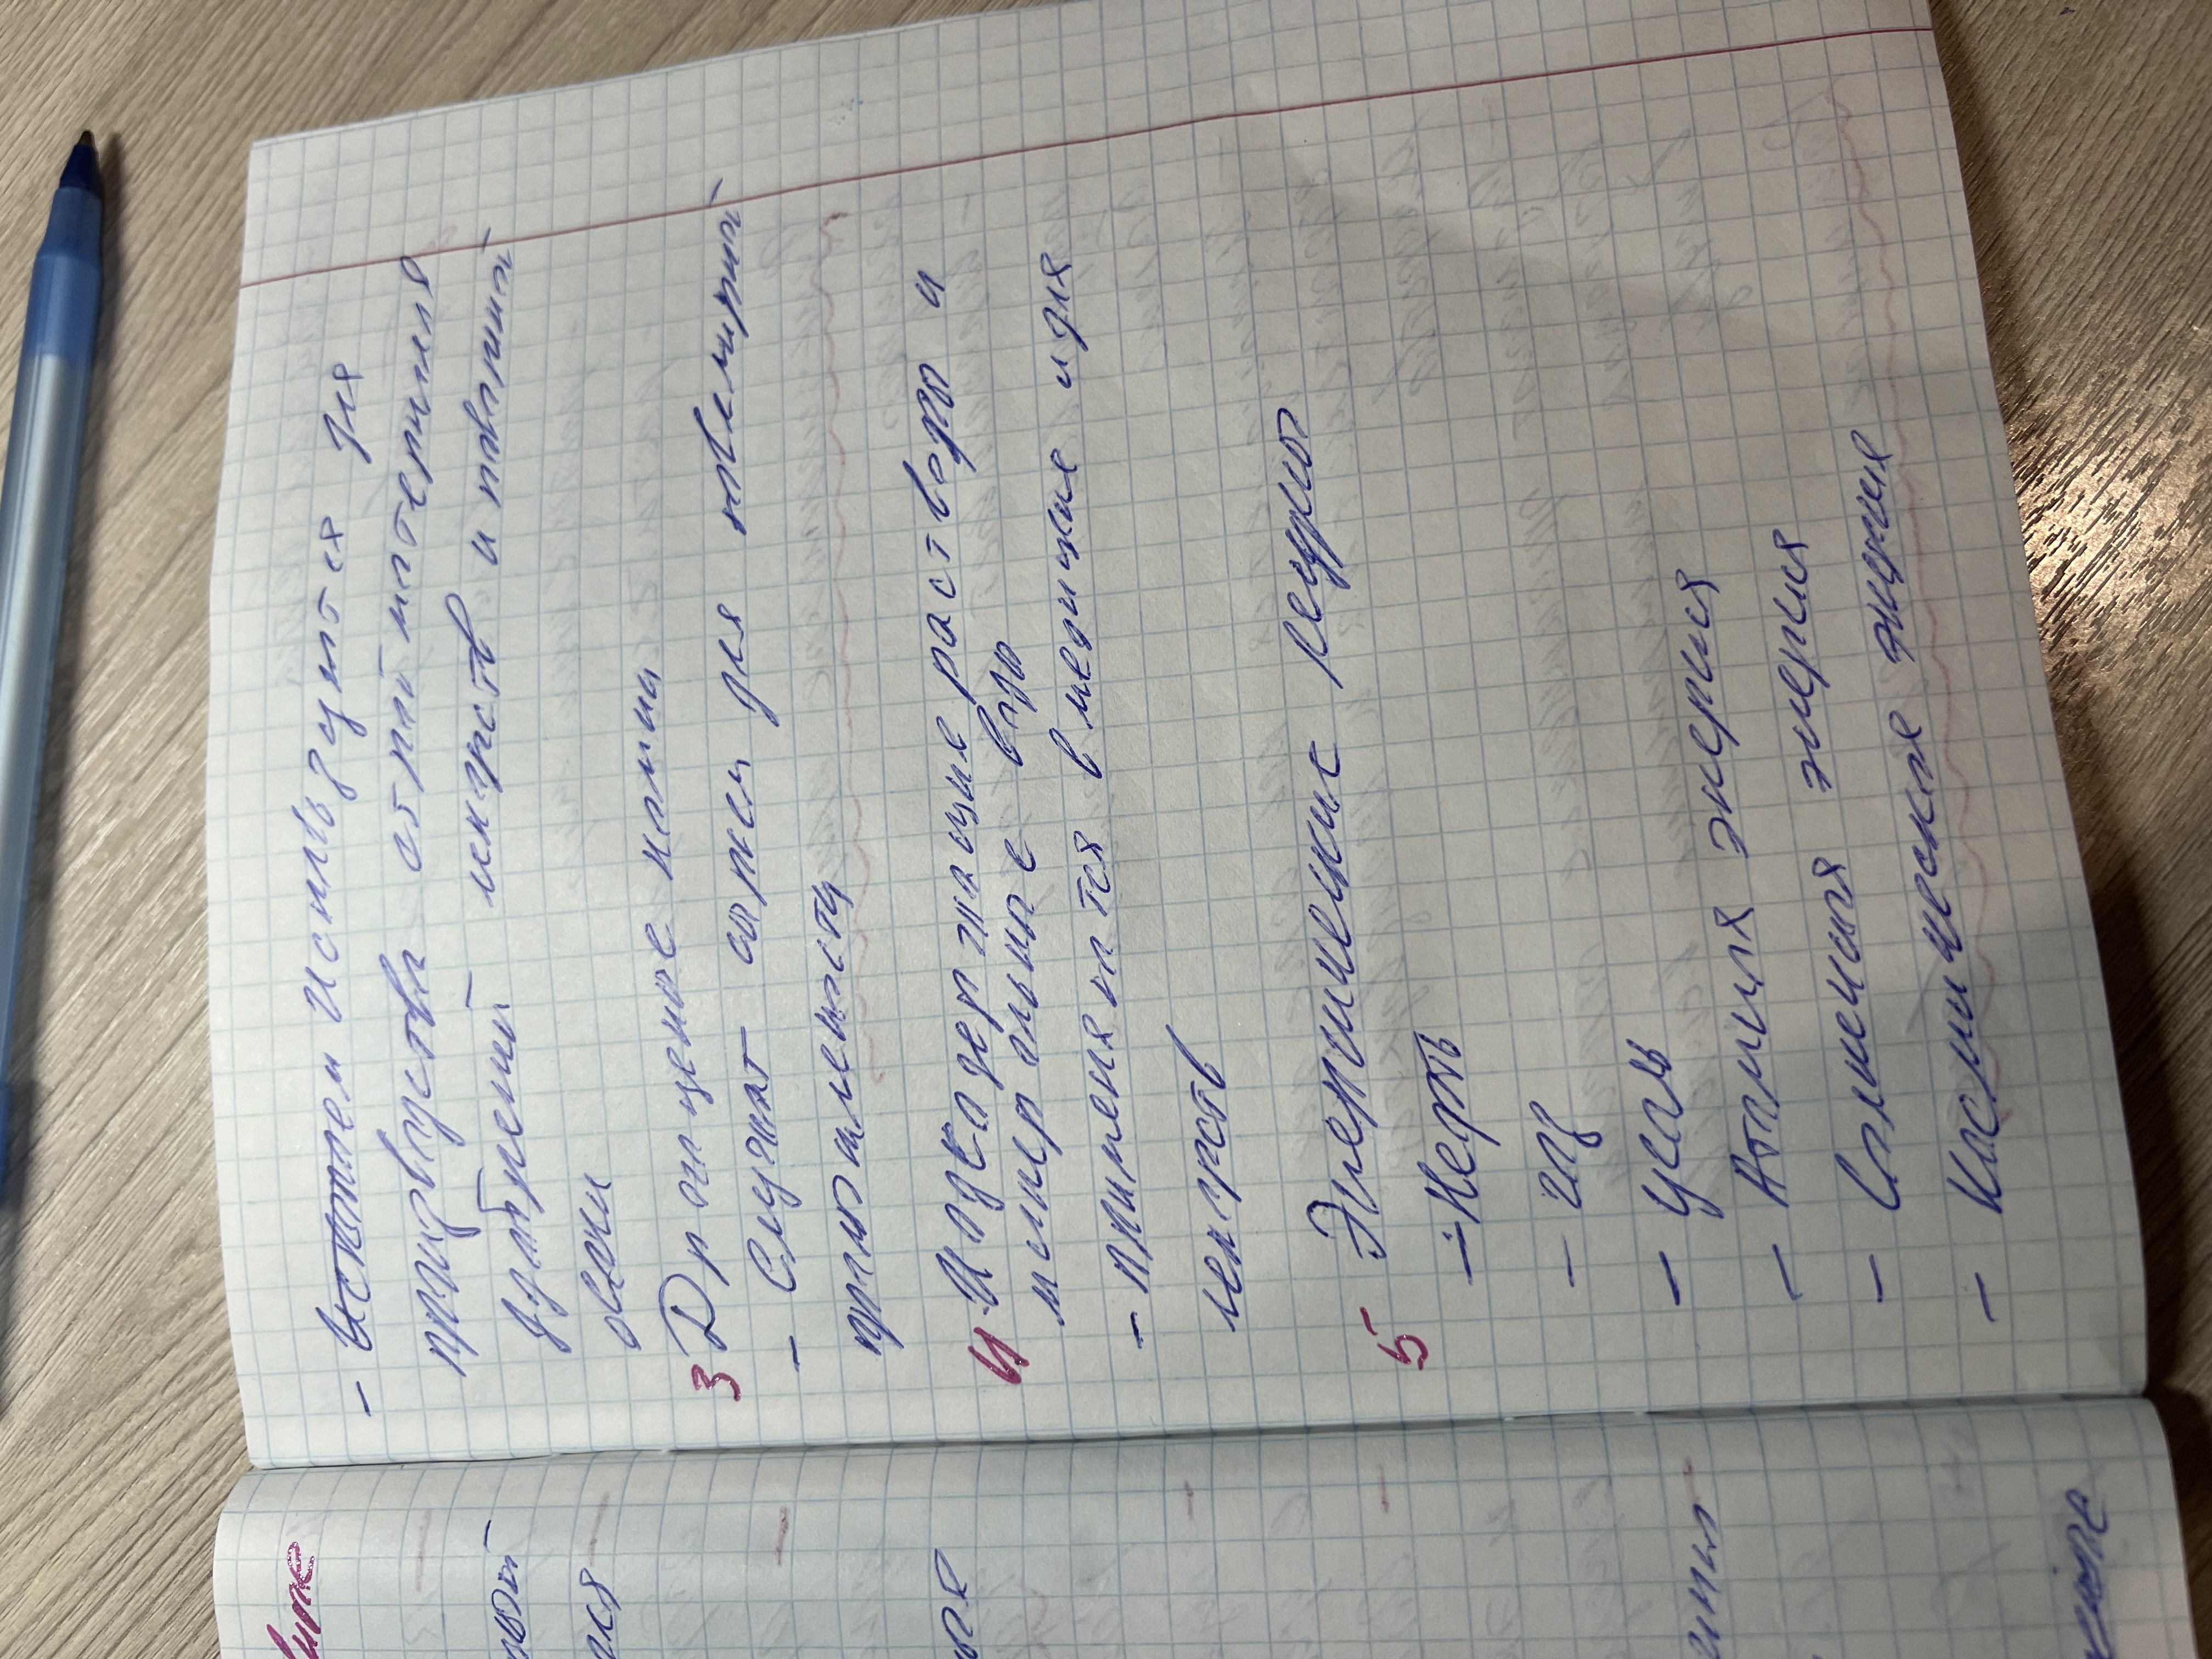 - используются для
производства строй материала
удобрений лекарств и поваренной
3 Драгоценные камни
- Служат сырьем для ювелирной
промышленности
4. Йодсодержащие растворы и
минеральные воды
- применяются в медицине и для
лекарств
5 Энергические ресурсы
- Нефть
- газ
- уголь
- Атомная энергия
- Солнечная энергия
- Космическая энергия